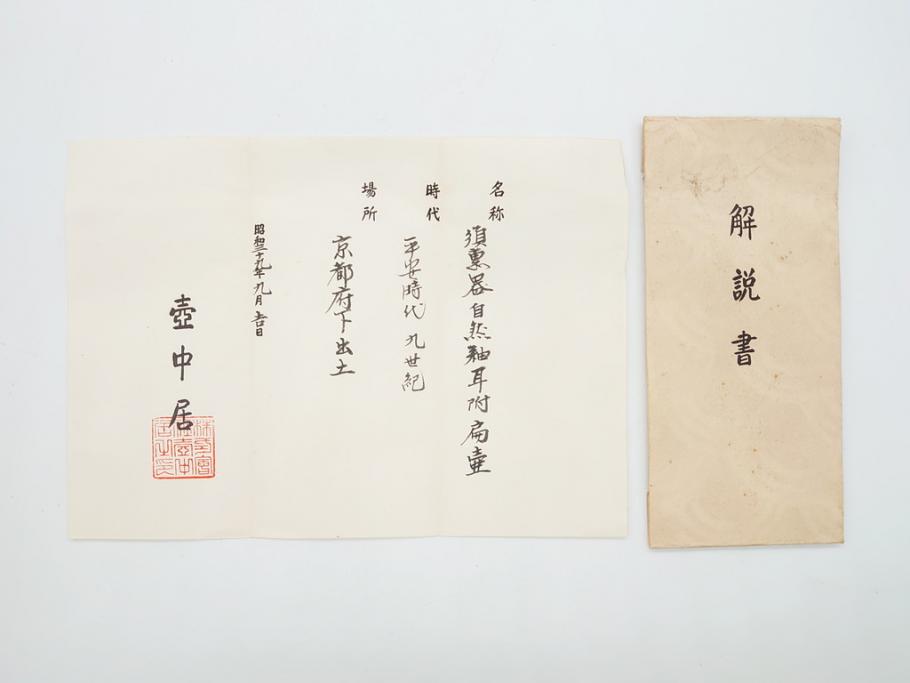 名称
須恵器自然釉耳附扁壷
時代
平安時代 九世紀
場所
京都府下出土
昭和三十九年九月吉日
壺中居
解説書